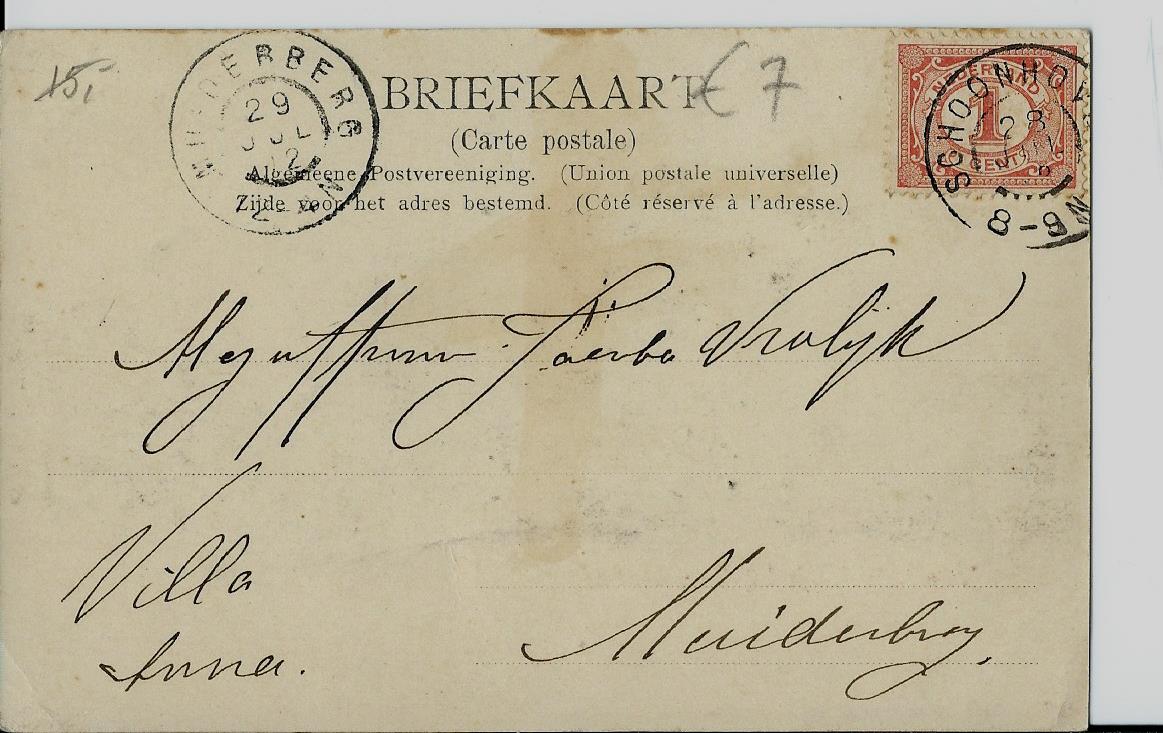 15,
MUIDERBERG
29
JUL
02
12
N
BRIEFKAART
€ 7
(Carte postale)
Algemeene Postvereeniging. (Union postale universelle)
Zijde voor het adres bestemd. (Côté réservé à l'adresse.)
NEDERLAND
1
CENT
SCHOONHOV
28
8-9
Mejuffrouw Vrolijk
Villa
Anna.
Muiderberg.